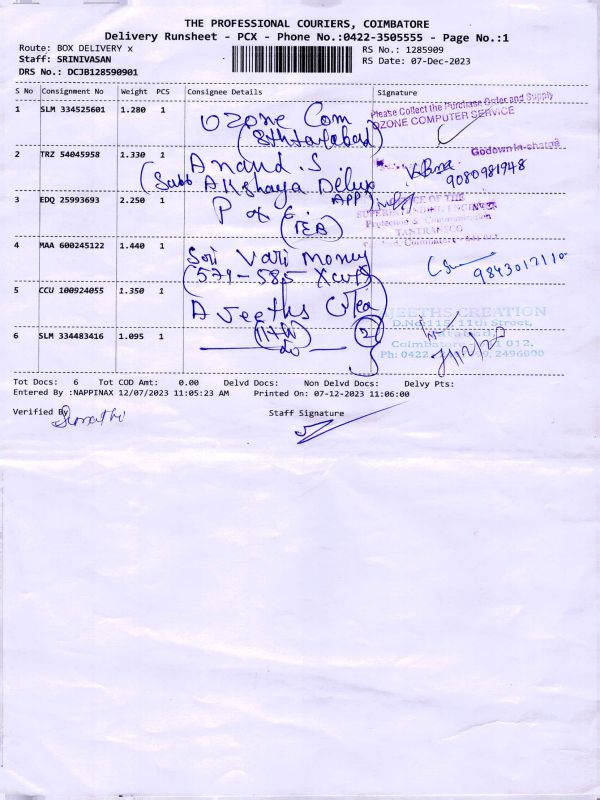 THE PROFESSIONAL COURIERS, COIMBATORE
Delivery Runsheet - PCX - Phone No.:0422-3505555 - Page No.:1
Route: BOX DELIVERY x RS No.: 1285909
Staff: SRINIVASAN RS Date: 07-Dec-2023
DRS No.: DCJB128590901
S No Consignment No Weight PCS Consignee Details Signature
1 SLM 334525601 1.280 1 Ozone Com Please Collect the Purchase Order and Supply
OZONE COMPUTER SERVICE
Godown in-charge
2 TRZ 54045958 1.330 1 Anand.S 9080981948
Akshaya Delux
APP)
3 EDQ 25993693 2.250 1 P &
(TEB)
OFFICE OF THE
SUPERINTENDING ENGINEER
Protection & Communication
TANTRANSCO
4 MAA 600245122 1.440 1 Sri Vari Money
(579-585
5 CCU 100924055 1.350 1 A Jeeths Crea
JEETHS CREATION
D.No:115, 11th Street,
6 SLM 334483416 1.095 1 (11th) 2 7/12/23
Ph: 0422 2496090
Tot Docs: 6 Tot COD Amt: 0.00 Delvd Docs: Non Delvd Docs: Delvy Pts:
Entered By :NAPPINAX 12/07/2023 11:05:23 AM Printed On: 07-12-2023 11:06:00
Verified By Staff Signature